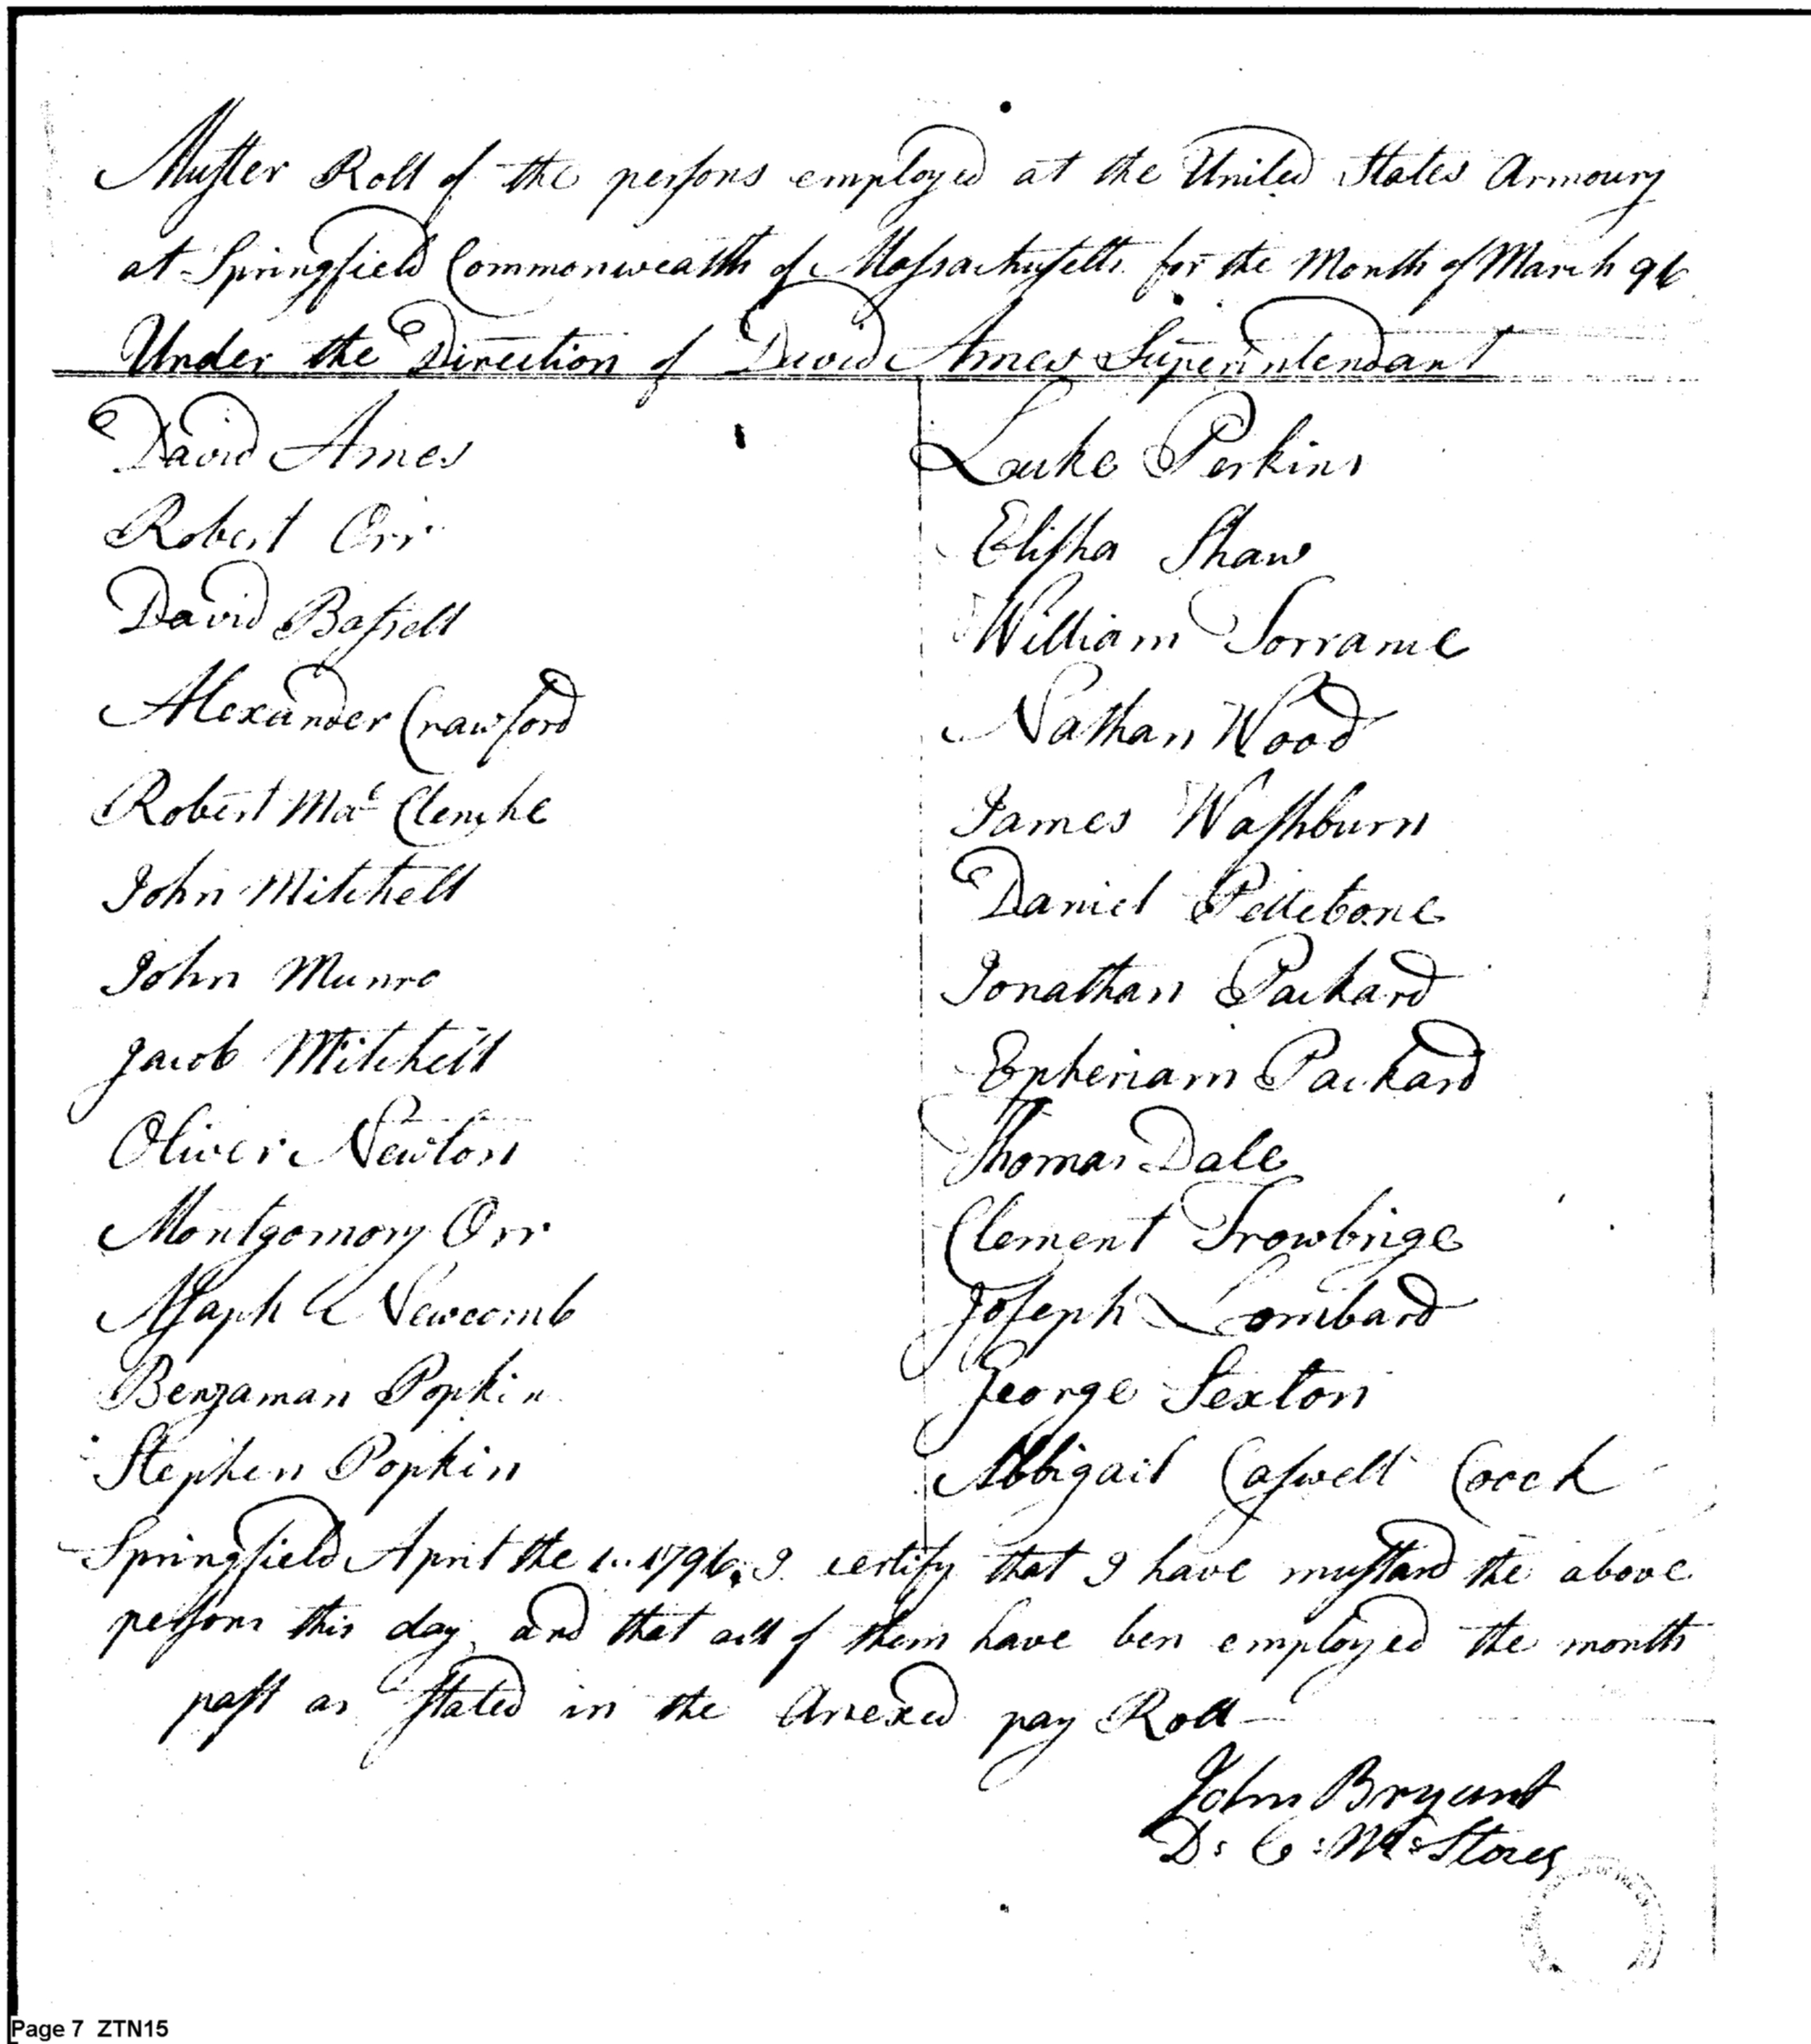 Muſter Roll of the perſons employed at the United States Armoury
at Springfield Commonwealth of Maſsachuſetts for the Month of March 96
Under the Direction of David Ames Superintendant
David Ames
Robert Orr
David Baſsett
Alexander Crawford
Robert Mac
John Mitchell
John Munro
Jacob Mitchell
Oliver Newton
Montgomory Orr
Aſaph Newcomb
Benjaman Popkin
Stephen Popkin
Luke Perkins
Eliſha Shaw
William
Nathan Wood
James Waſhburn
Daniel Pettebone
Jonathan Packard
Epheriam Packard
Thomas Dale
Clement Trowbrige
Joſeph Lombard
George Sexton
Abbigail Caſwell Coock
Springfield April the 1.. 1796. I certify that I have muſtard the above
perſons this day, and that all of them have ben employed the month
paſt as ſtated in the Anexed pay Roll
John Bryant
D: C: M: Stores
Page 7 ZTN15